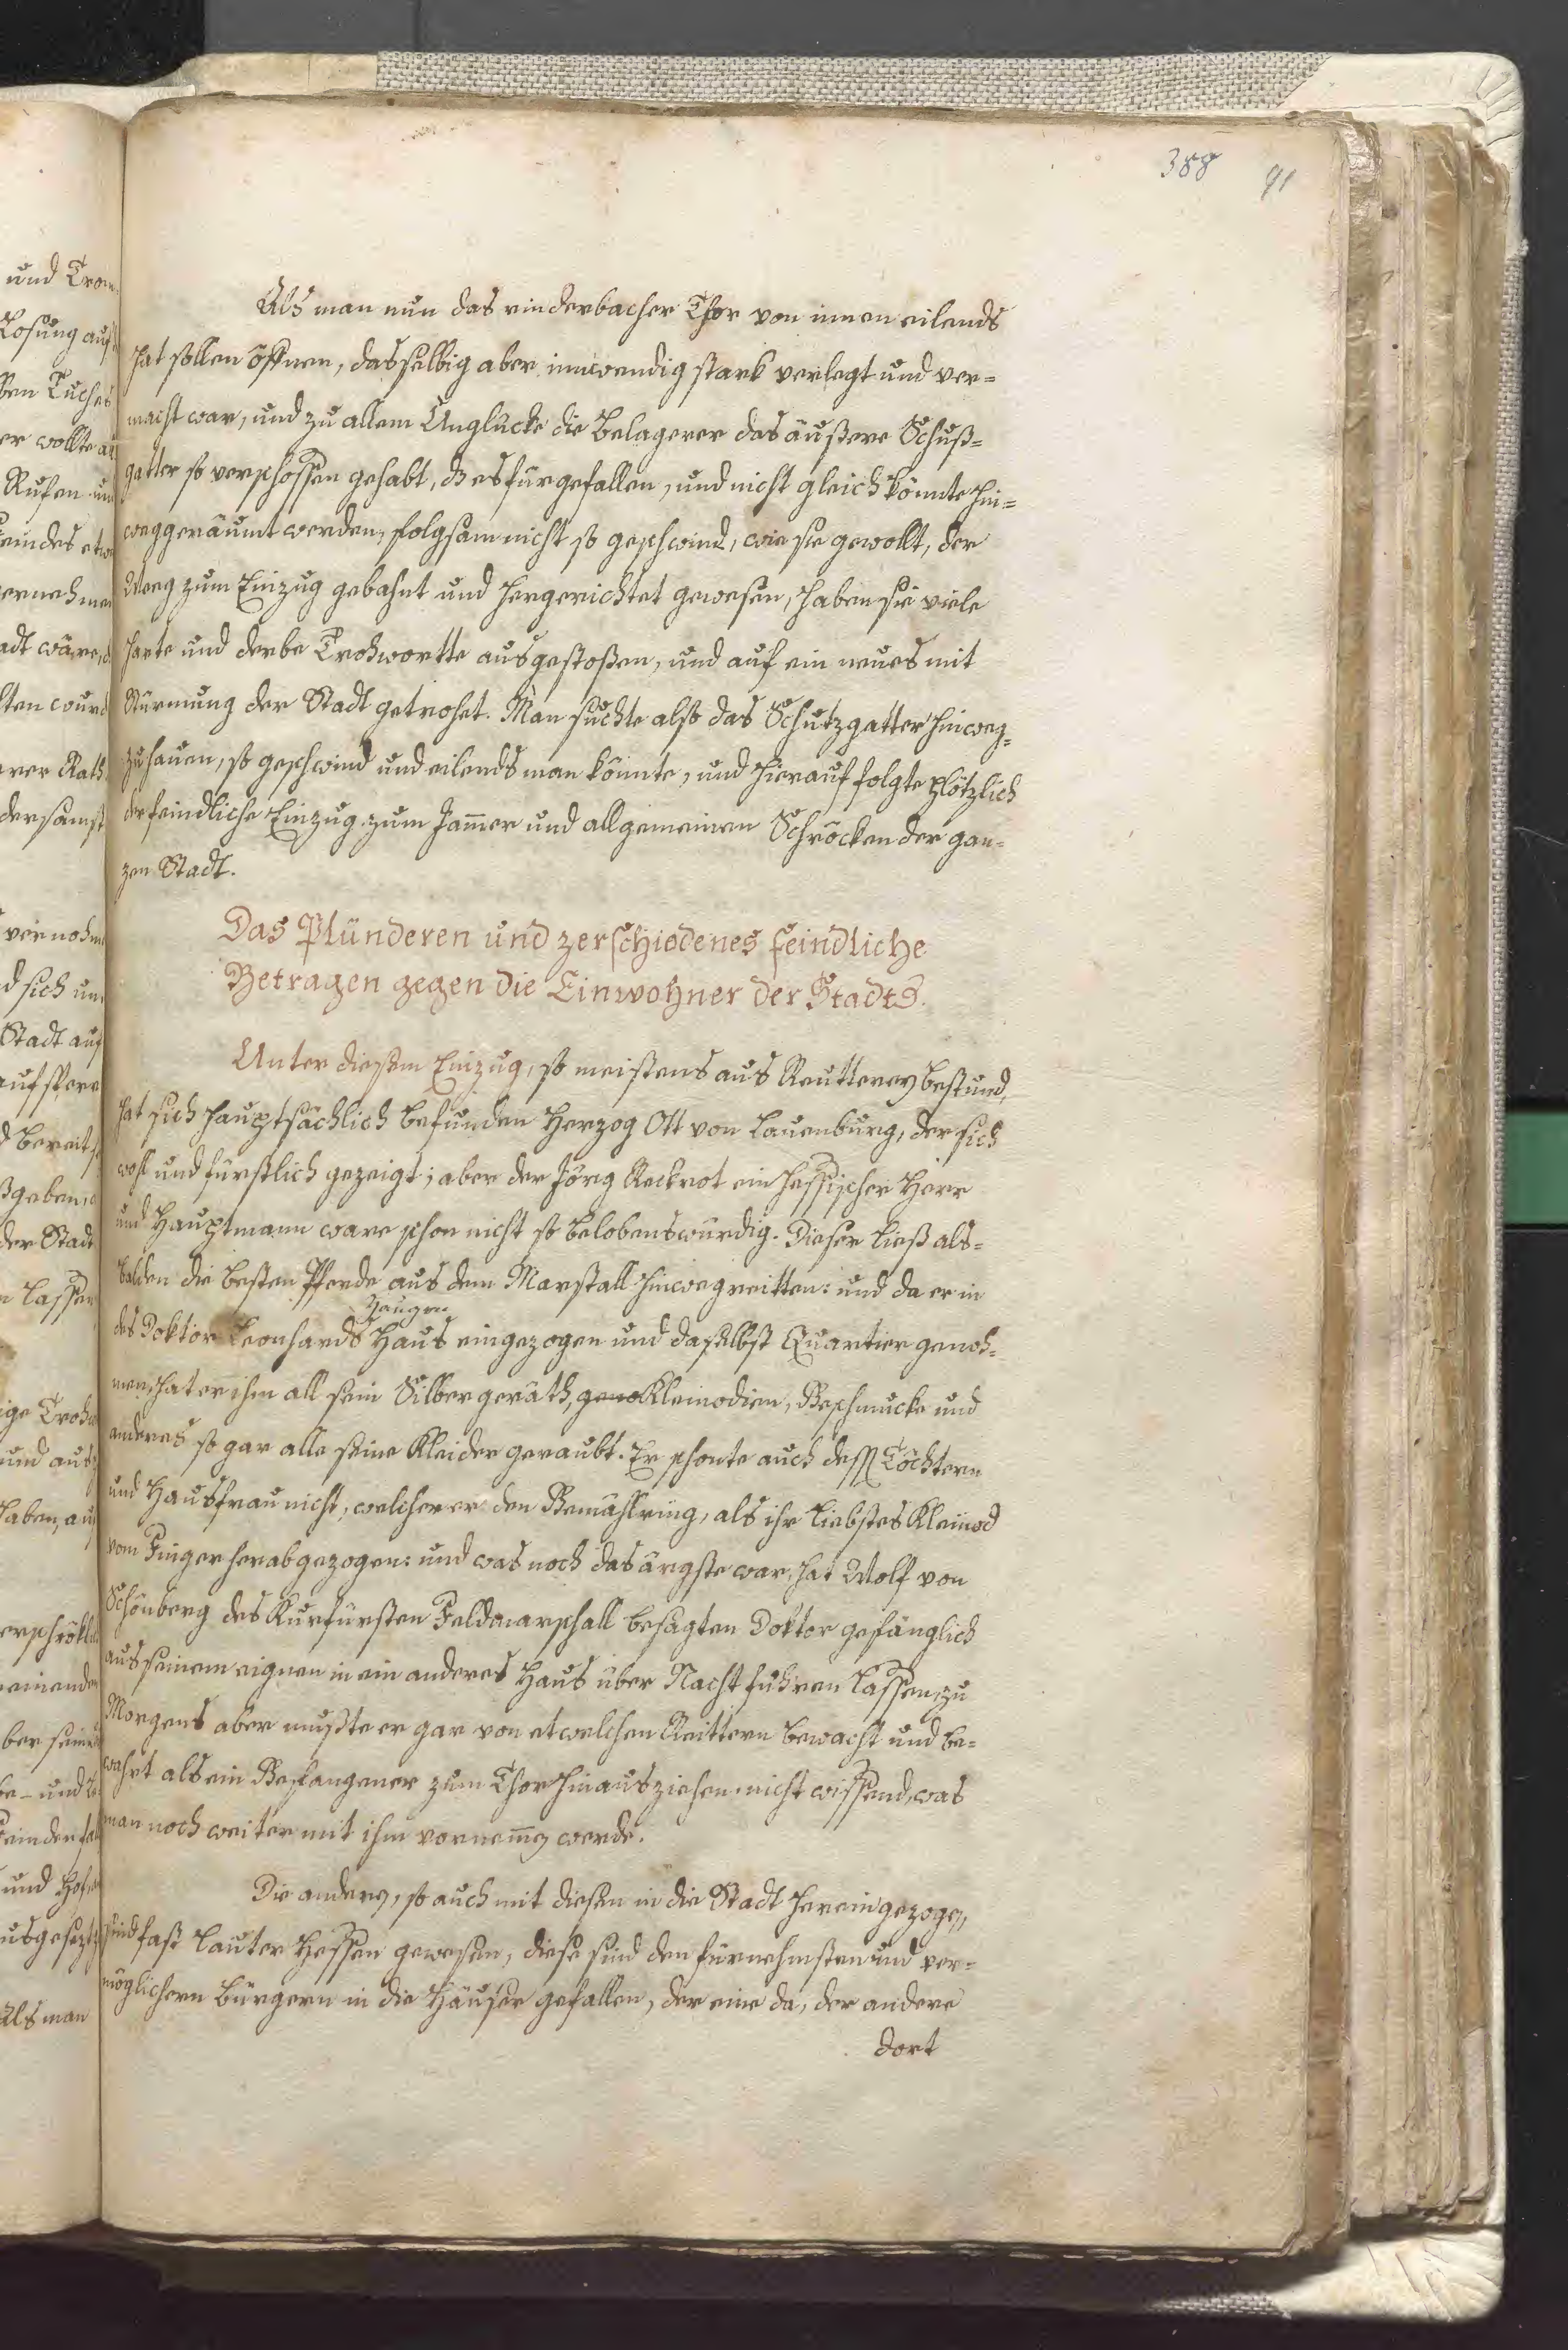 388 91
Als man nun das rinderbacher Thor von innen eilends
hat sollen öffnen, dasselbig aber innwendig stark verlegt und ver=
macht war, und zu allem Unglücke die Belagerer das äußere Schuß=
gatter so verschossen gehabt, dz es fürgefallen, und nicht gleich könnte hin=
weggeräumt werden, folgsam nicht so geschwind, wie sie gewollt, der
Weeg zum Einzug gebahnt und hergerichtet gewesen, haben sie viele
harte und derbe Trohwortte ausgestoßen, und auf ein neues mit
Stürmung der Stadt getrohet. Man suchte also das Schutzgatter hinweg=
zuhauen, so geschwind und eilends man könnte, und hierauf folgte plötzlich
der feindliche Einzug zum Jam̄er und allgemeinen Schröcken der gan=
zen Stadt.
Das Plünderen und zerschiedenes feindliche
Betragen gegen die Einwohner der Stadts.
Unter diesem Einzug, so meistens aus Reutterey bestund,
hat sich hauptsächlich befunden Herzog Ott von Lauenburg, der sich
wohl und fürstlich gezeigt; aber der Jörg Reckrot ein hessischer Herr
und Hauptmann ware schon nicht so belobenswürdig. Dieser ließ als=
balden die besten Pferde aus dem Marstall hinwegreitten: und da er in
Haugen
des Doktor Leonhards Haus eingezogen und daselbst Quartier genoh=
men, hat er ihm all sein Silbergeräth, geno Kleinodien, Geschmucke und
anderes so gar alle seine Kleider geraubt. Er schonte auch dess Töchtern
und Hausfrau nicht, welcher er den Gemählring, als ihr liebstes Kleinod
vom Finger herabgezogen: und was noch das ärgste war, hat Wolf von
Schönberg des Kurfürsten Feldmarschall besagten Doktor gefänglich
aus seinem eignen in ein anderes Haus über Nacht führen lassen, zu
Morgens aber mußte er gar von etwelchen Reittern bewacht und be=
wahrt als ein Gefangener zum Thor hinausziehen nicht wissend, was
man noch weiter mit ihm vornem̄en werde.
Die andern, so auch mit diesen in die Stadt hereingezogen,
sind fast lauter Hessen gewesen, diese sind den fürnehmsten und ver=
möglichern Bürgern in die Häuser gefallen, der eine da, der andere
dort